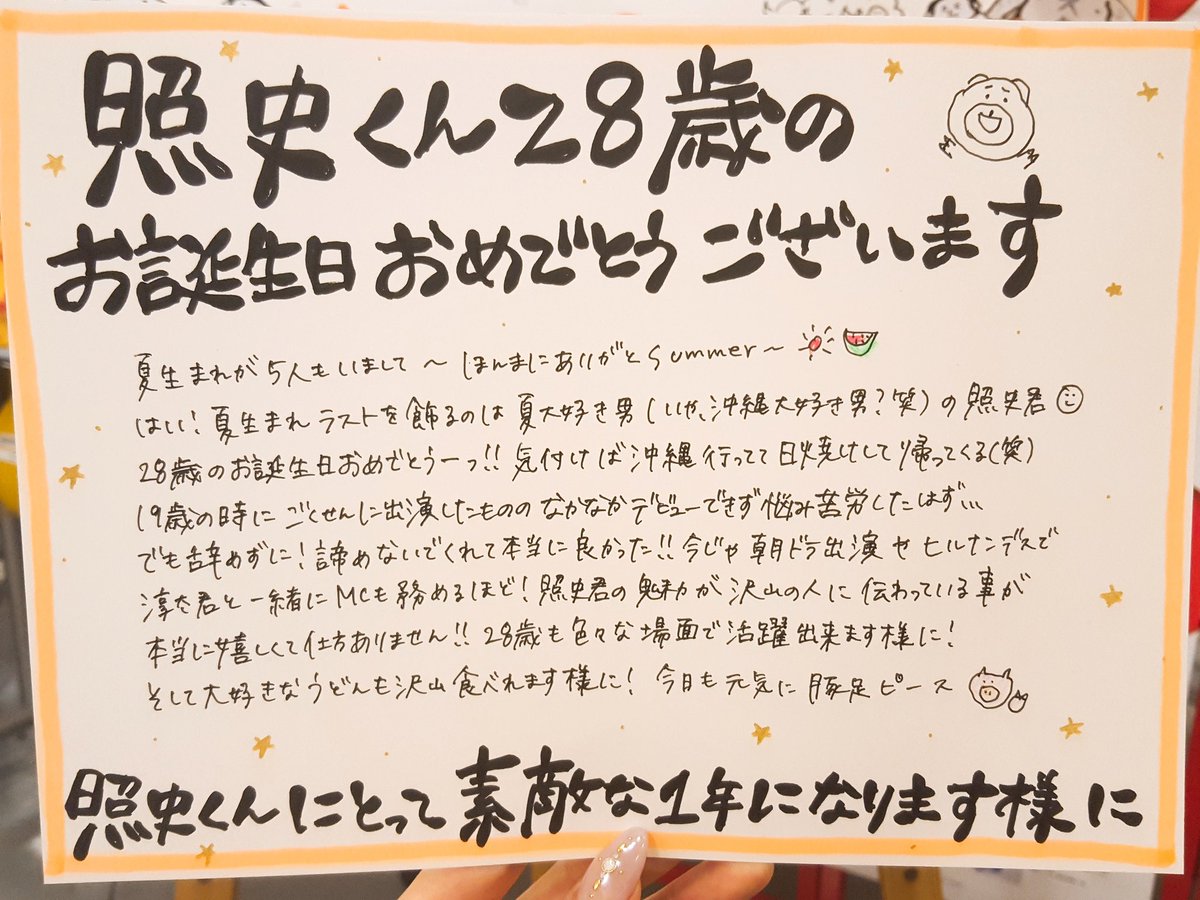 照史くん28歳の
お誕生日おめでとうございます
夏生まれが5人もいまして〜ほんまにありがとSummer〜
はい!夏生まれラストを飾るのは夏大好き男(いや、沖縄大好き男?笑)の照史君
28歳のお誕生日おめでとうーっ!!気付けば沖縄行ってて日焼けして帰ってくる(笑)
19歳の時にごくせんに出演したもののなかなかデビューできず悩み苦労したはず...
でも辞めずに!諦めないでくれて本当に良かった!!今じゃ朝ドラ出演やヒルナンデスで
淳太君と一緒にMCも務めるほど!照史君の魅力が沢山の人に伝わっている事が
本当に嬉しくて仕方ありません!!28歳も色々な場面で活躍出来ます様に!
そして大好きなうどんも沢山食べれます様に!今日も元気に豚足ピース
照史くんにとって素敵な1年になります様に